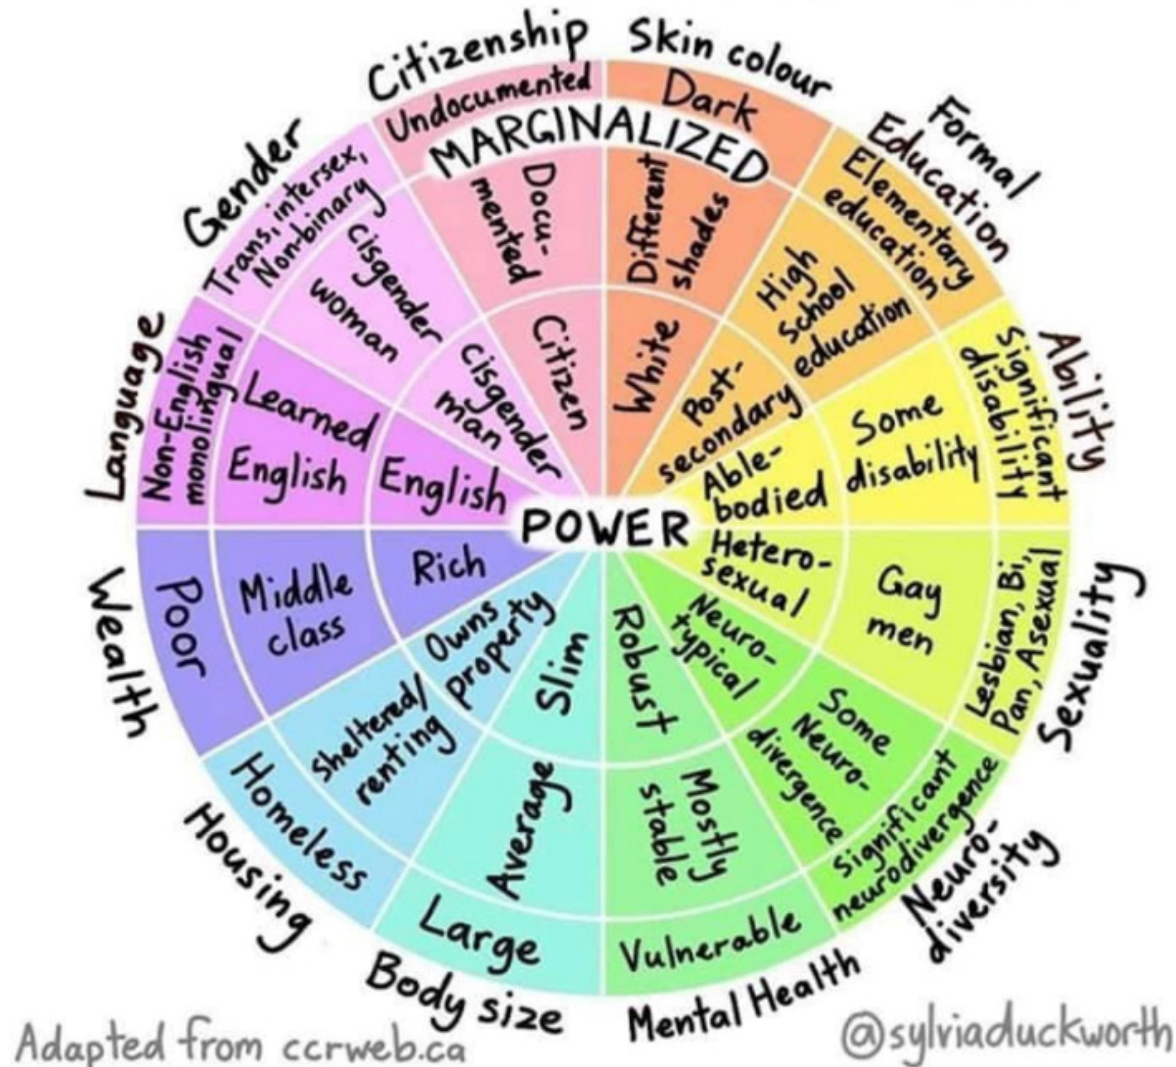 Citizenship
Undocumented
Docu-
mented
Citizen
Skin colour
Dark
Different
shades
White
Formal
Education
Elementary
education
High
School
education
Post-
secondary
Ability
Significant
disability
Some
disability
Able-
bodied
Sexuality
Lesbian, Bi,
Pan, Asexual
Gay
men
Hetero-
sexual
Neuro-
diversity
Significant
neurodivergence
Some
Neuro-
divergence
Neuro-
typical
Mental Health
Vulnerable
Mostly
stable
Robust
Body size
Large
Average
Slim
Housing
Homeless
Sheltered/
renting
Owns
property
Wealth
Poor
Middle
class
Rich
Language
Non-English
monolingual
Learned
English
English
Gender
Trans, intersex,
Non-binary
cisgender
woman
cisgender
man
MARGINALIZED
POWER
Adapted from ccrweb.ca
@sylviaduckworth